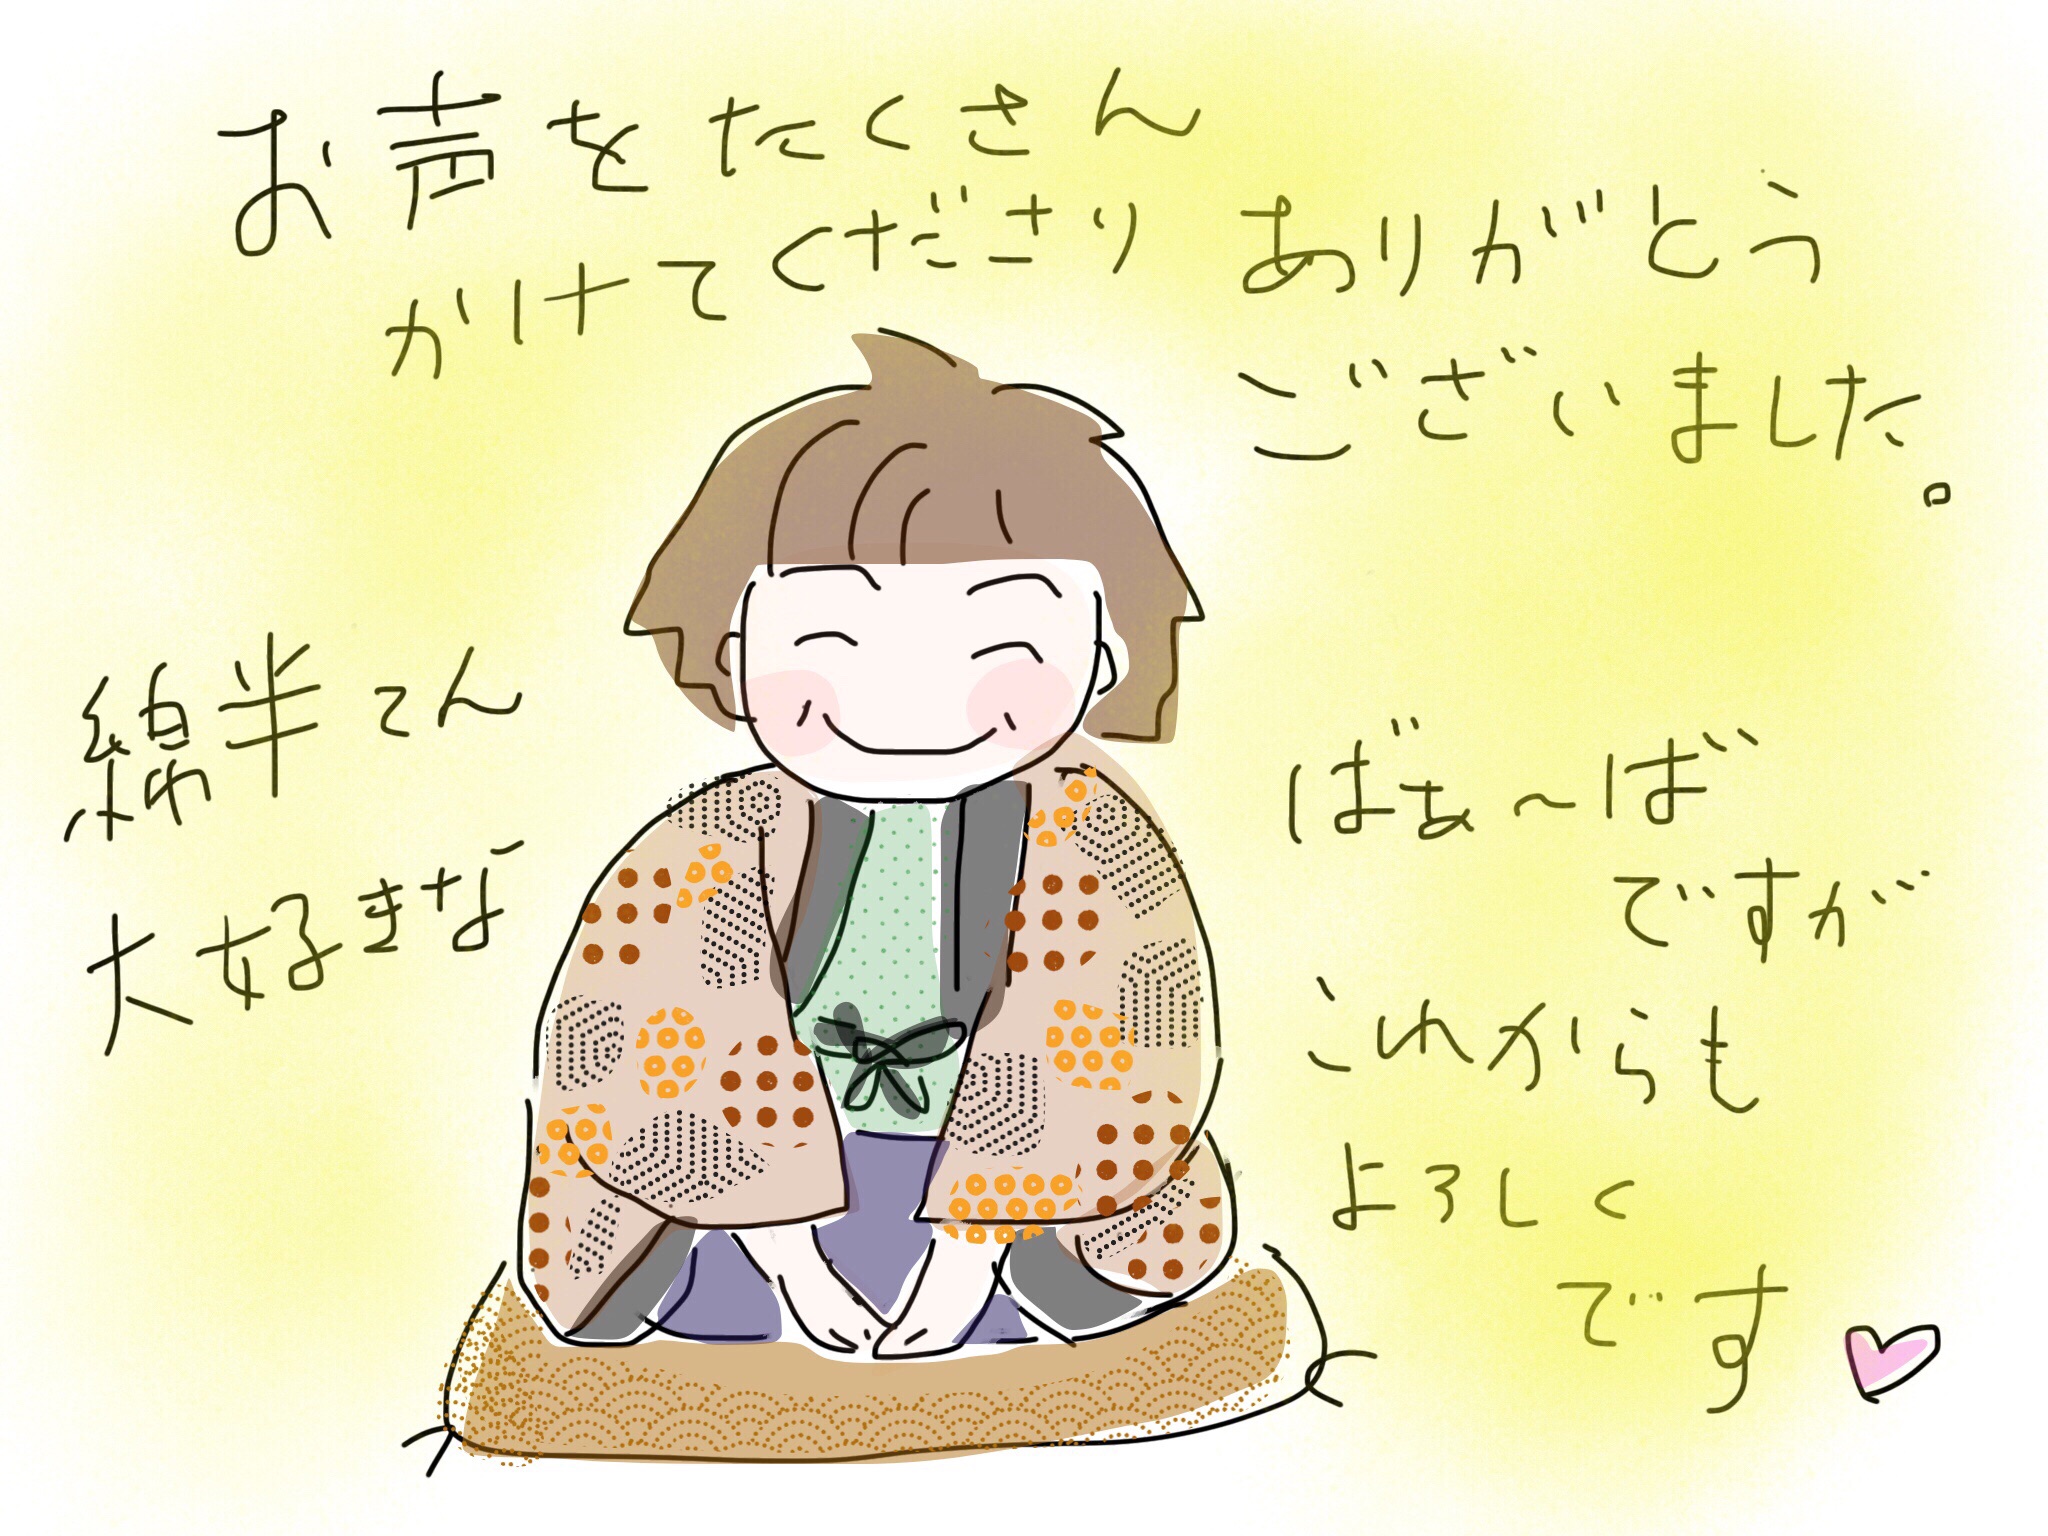 お声をたくさん
かけてくださり
ありがとう
ございました。
綿半てん
大好きな
ばぁ〜ば
ですが
これからも
よろしく
です